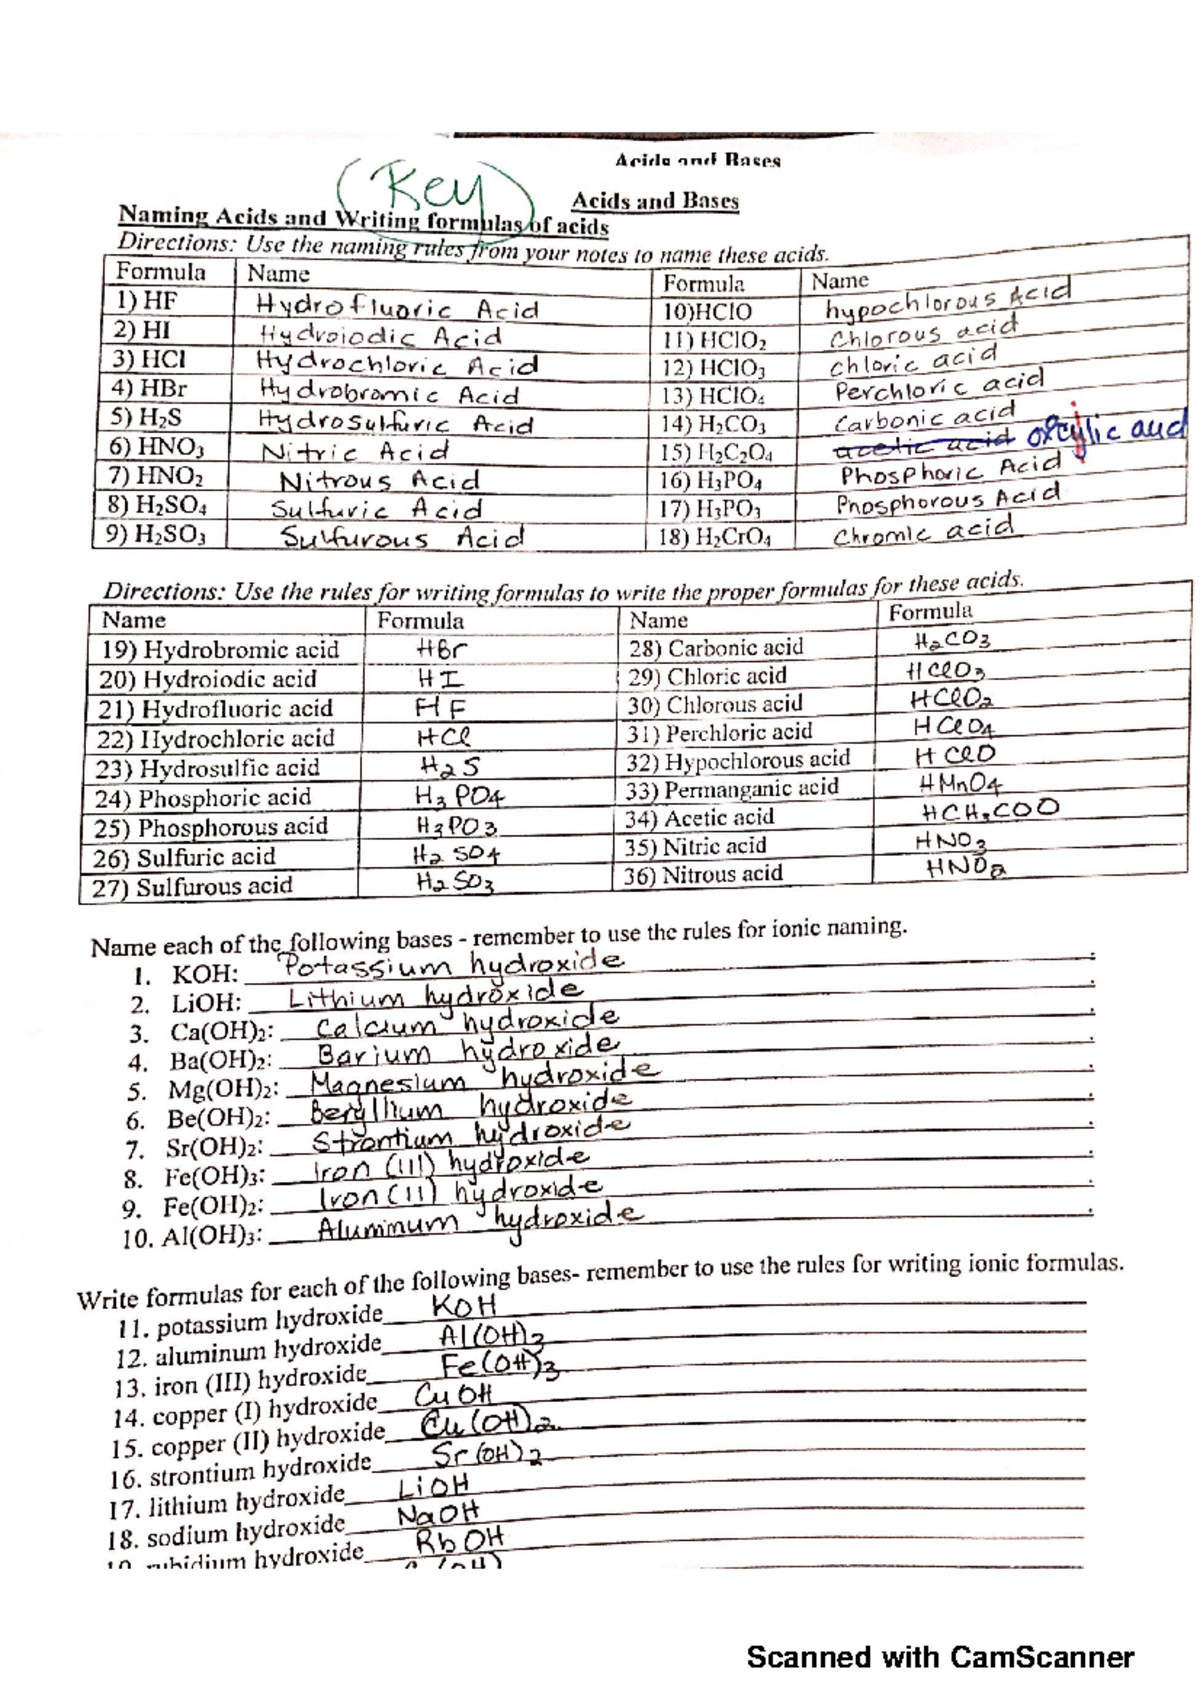 Acids and Bases
(Key)
Acids and Bases
Naming Acids and Writing formulas of acids
Directions: Use the naming rules from your notes to name these acids.
Formula Name Formula Name
1) HF Hydrofluoric Acid 10)HClO hypochlorous Acid
2) HI Hydroiodic Acid 11) HClO₂ Chlorous acid
3) HCl Hydrochloric Acid 12) HClO₃ chloric acid
4) HBr Hydrobromic Acid 13) HClO₄ Perchloric acid
5) H₂S Hydrosulfuric Acid 14) H₂CO₃ Carbonic acid
6) HNO₃ Nitric Acid 15) H₂C₂O₄ acetic acid
7) HNO₂ Nitrous Acid 16) H₃PO₄ Phosphoric Acid
8) H₂SO₄ Sulfuric Acid 17) H₃PO₃ Phosphorous Acid
9) H₂SO₃ Sulfurous Acid 18) H₂CrO₄ Chromic acid
Directions: Use the rules for writing formulas to write the proper formulas for these acids.
Name Formula Name Formula
19) Hydrobromic acid HBr 28) Carbonic acid H₂CO₃
20) Hydroiodic acid HI 29) Chloric acid HClO₃
21) Hydrofluoric acid HF 30) Chlorous acid HClO₂
22) Hydrochloric acid HCl 31) Perchloric acid HClO₄
23) Hydrosulfic acid H₂S 32) Hypochlorous acid HClO
24) Phosphoric acid H₃PO₄ 33) Permanganic acid HMnO₄
25) Phosphorous acid H₃PO₃ 34) Acetic acid HCH₃COO
26) Sulfuric acid H₂SO₄ 35) Nitric acid HNO₃
27) Sulfurous acid H₂SO₃ 36) Nitrous acid HNO₂
Name each of the following bases - remember to use the rules for ionic naming.
1. KOH: Potassium hydroxide.
2. LiOH: Lithium hydroxide.
3. Ca(OH)₂: Calcium hydroxide.
4. Ba(OH)₂: Barium hydroxide.
5. Mg(OH)₂: Magnesium hydroxide.
6. Be(OH)₂: Beryllium hydroxide.
7. Sr(OH)₂: Strontium hydroxide.
8. Fe(OH)₃: Iron (III) hydroxide.
9. Fe(OH)₂: Iron (II) hydroxide.
10. Al(OH)₃: Aluminum hydroxide.
Write formulas for each of the following bases- remember to use the rules for writing ionic formulas.
11. potassium hydroxide KOH
12. aluminum hydroxide Al(OH)₃
13. iron (III) hydroxide Fe(OH)₃
14. copper (I) hydroxide CuOH
15. copper (II) hydroxide Cu(OH)₂
16. strontium hydroxide Sr(OH)₂
17. lithium hydroxide LiOH
18. sodium hydroxide NaOH
19. rubidium hydroxide RbOH
Scanned with CamScanner